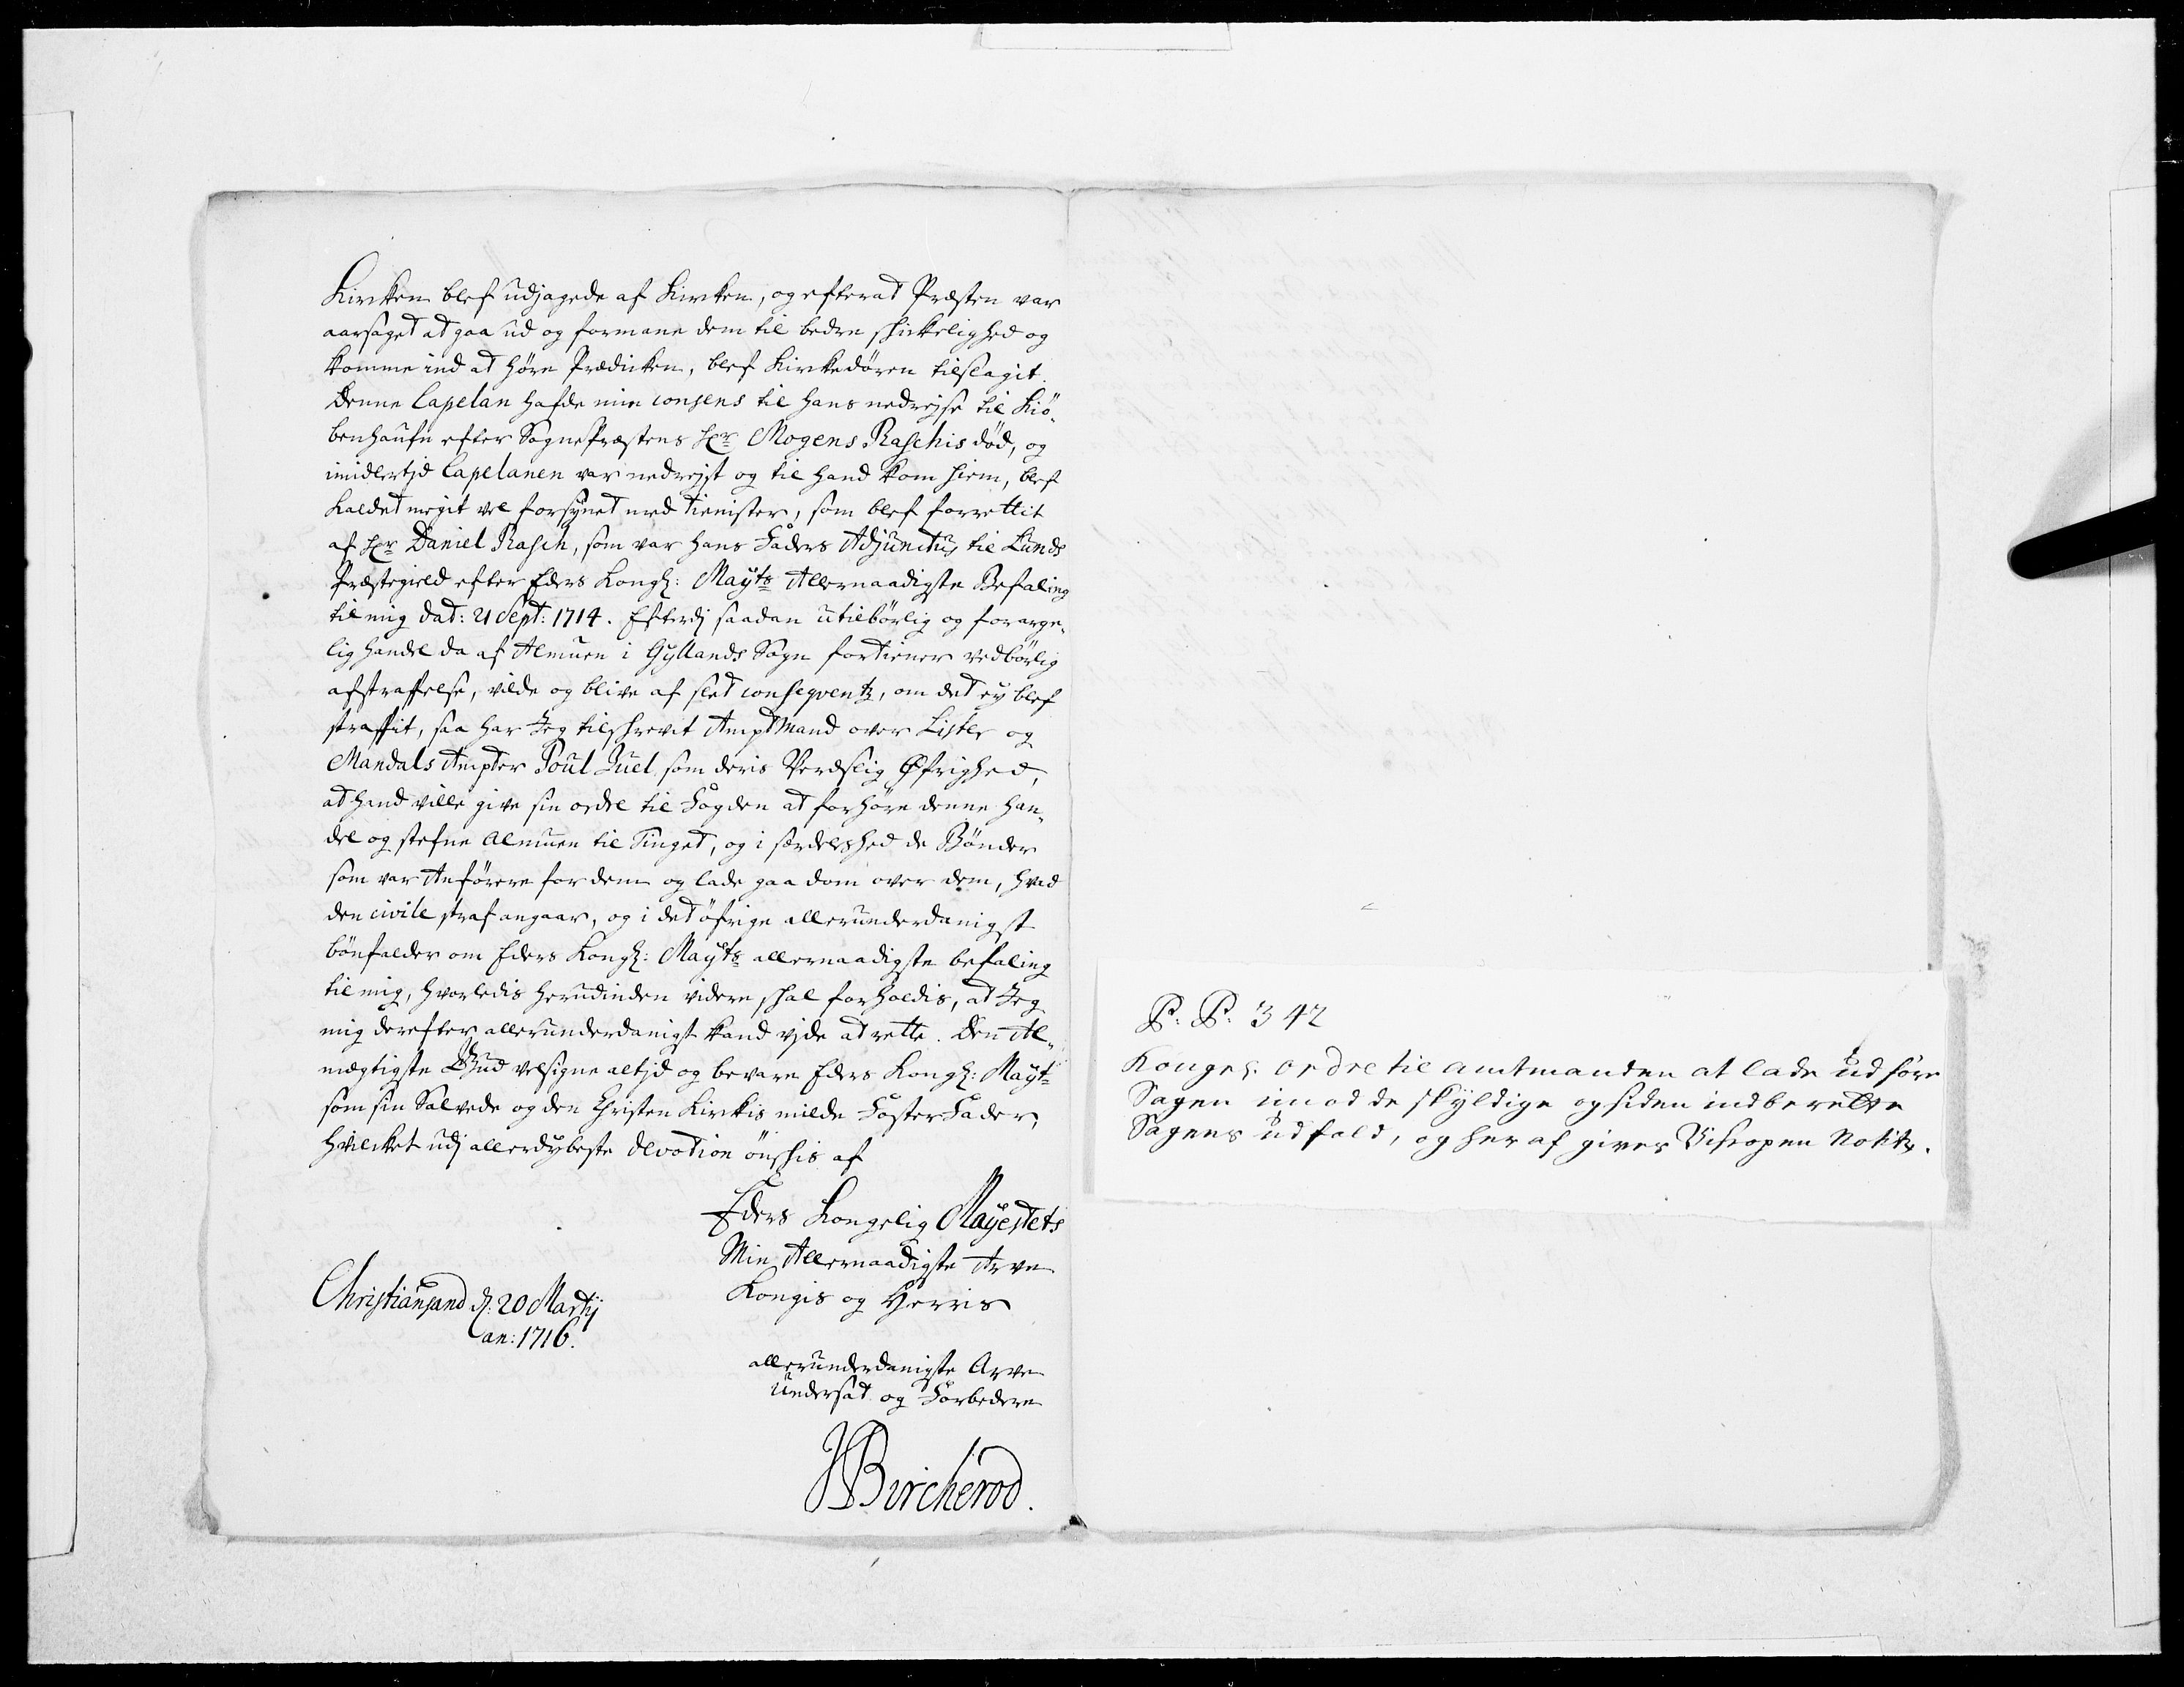 Kircken blef udjagede af Kircken, og efterat Præsten var
aarsaget at gaa ud og formane dem til bedre skickelighed og
komme ind at høre Prædicken, blef Kirckedøren tilslagit.
Denne Capelan hafde min consens til hans nedrejse til Kiø-
benhaufn efter SognePræstens Hr Mogens Raschis død, og
imidlertjd Capelanen var nedrejst og til hand kom hiem, blef
kaldet megit vel forsynet med tienister, som blef forrettit
af Hr Daniel Rasch, som var hans Faders Adjunctus til Lunds
Præstegield efter Eders Kongl: Mayts Allernaadigste Befaling
til mig dat: 21 Sept: 1714. Efterdj saadan utilbørlig og forarge-
lig handel da af Almuen i Gyllands Sogn fortiener vedbørlig
afstraffelse, vilde og blive af slet conseqventz, om det ey blef
straffit, saa har Jeg tilskrevit Amptmand over Lister og
Mandals Ampter Poul Juel som deris Verdslig Øfrighed,
at hand ville give sin ordre til Fogden at forhøre denne han-
del og stefne Almuen til Tinget, og i særdelished de Bønder
som var Anførere for dem og lade gaa dom over dem, hvad
den civile straf angaar, og i det øfrige allerunderdanigst
bønfalder om Eders Kongl: Mayts allernaadigste befaling
til mig, hvorledis herudinden videre skal forholdis, at Jeg
mig derefter allerunderdanigst kand vjde at rette. Den Al-
mægtigste Gud velsigne altjd og bevare Eders Kongl: Mayt
som sin Salvede og den Christen Kirkis milde FosterFader,
hvilcket udj allerdybeste devotion ønskis af
Eders Kongelig Mayestets
Min Allernaadigste Arve
Kongis og Herris
Christiansand d. 20 Martij
an: 1716.
allerunderdanigste Arve
Undersat og Forbedere
JBircherod.
P: P: 342
Kongel. ordre til amtmanden at lade udføre
Sagen imod de skyldige og siden indberette
Sagens udfald, og her af gives Bispen Notitz.